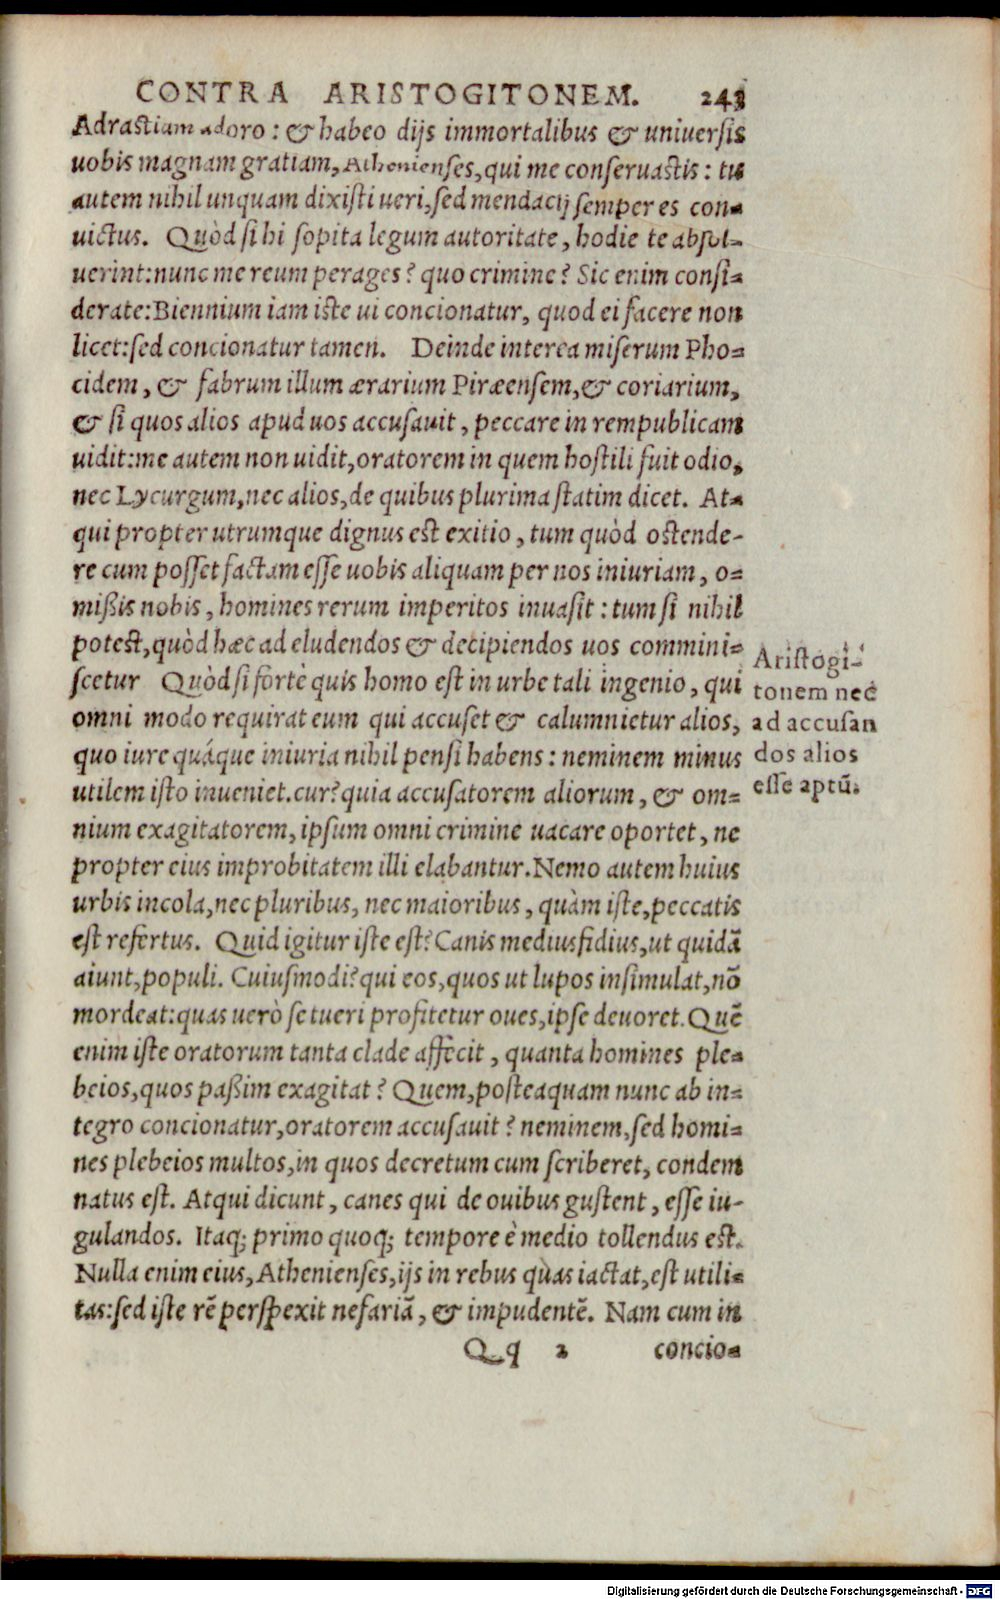 CONTRA ARISTOGITONEM. 243
Adrastiam adoro: & habeo dijs immortalibus & universis
uobis magnam gratiam, Athenienses, qui me conseruastis: tu
autem nihil unquam dixisti ueri, sed mendacij semper es con-
uictus. Quòd si hi sopita legum autoritate, hodie te absol-
uerint: nunc me reum perages? quo crimine? Sic enim consi-
derate: Biennium iam iste ui concionatur, quod ei facere non
licet: sed concionatur tamen. Deinde interea miserum Pho-
cidem, & fabrum illum ærarium Piræensem, & coriarium,
& si quos alios apud uos accusauit, peccare in rempublicam
uidit: me autem non uidit, oratorem in quem hostili fuit odio,
nec Lycurgum, nec alios, de quibus plurima statim dicet. At-
qui propter utrumque dignus est exitio, tum quòd ostende-
re cum posset factam esse uobis aliquam per nos iniuriam, o-
mißis nobis, homines rerum imperitos inuasit: tum si nihil
potest, quòd hæc ad eludendos & decipiendos uos commini-
scetur Quòd si fortè quis homo est in urbe tali ingenio, qui
omni modo requirat eum qui accuset & calumnietur alios,
quo iure quáque iniuria nihil pensi habens: neminem minus
utilem isto inueniet. cur? quia accusatorem aliorum, & om-
nium exagitatorem, ipsum omni crimine uacare oportet, ne
propter eius improbitatem illi elabantur. Nemo autem huius
urbis incola, nec pluribus, nec maioribus, quàm iste, peccatis
est refertus. Quid igitur iste est? Canis mediusfidius, ut quidã
aiunt, populi. Cuiusmodi? qui eos, quos ut lupos insimulat, nõ
mordeat: quas uerò se tueri profitetur oues, ipse deuoret. Quẽ
enim iste oratorum tanta clade affecit, quanta homines ple-
beios, quos paßim exagitat? Quem, posteaquam nunc ab in-
tegro concionatur, oratorem accusauit? neminem, sed homi-
nes plebeios multos, in quos decretum cum scriberet, condem
natus est. Atqui dicunt, canes qui de ouibus gustent, esse iu-
gulandos. Itaq; primo quoq; tempore è medio tollendus est.
Nulla enim eius, Athenienses, ijs in rebus quas iactat, est utili-
tas: sed iste rẽ perspexit nefariã, & impudentẽ. Nam cum in
Qq 2 concio-
Aristogi-
tonem nec
ad accusan
dos alios
esse aptũ.
Digitalisierung gefördert durch die Deutsche Forschungsgemeinschaft - DFG